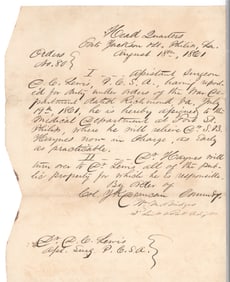 Head Quarters
Fort Jackson & St. Philip, La.
August 18th, 1861
Orders
No. 80
I. Assistant Surgeon
C. C. Lewis, P. C. S. A., having report-
ed for duty under orders of the War De-
partment dated Richmond Va. July
19th 1861, he is hereby assigned to the
Medical Department at Fort St.
Philip, where he will relieve Dr. S. B.
Haynes now in charge, as early
as practicable.
II. Dr. Haynes will
turn over to Dr. Lewis, all of the pub-
lic property for which he is responsible
By Order of
Col.
Dr. C. C. Lewis
Asst. Surg P. C. S. A.